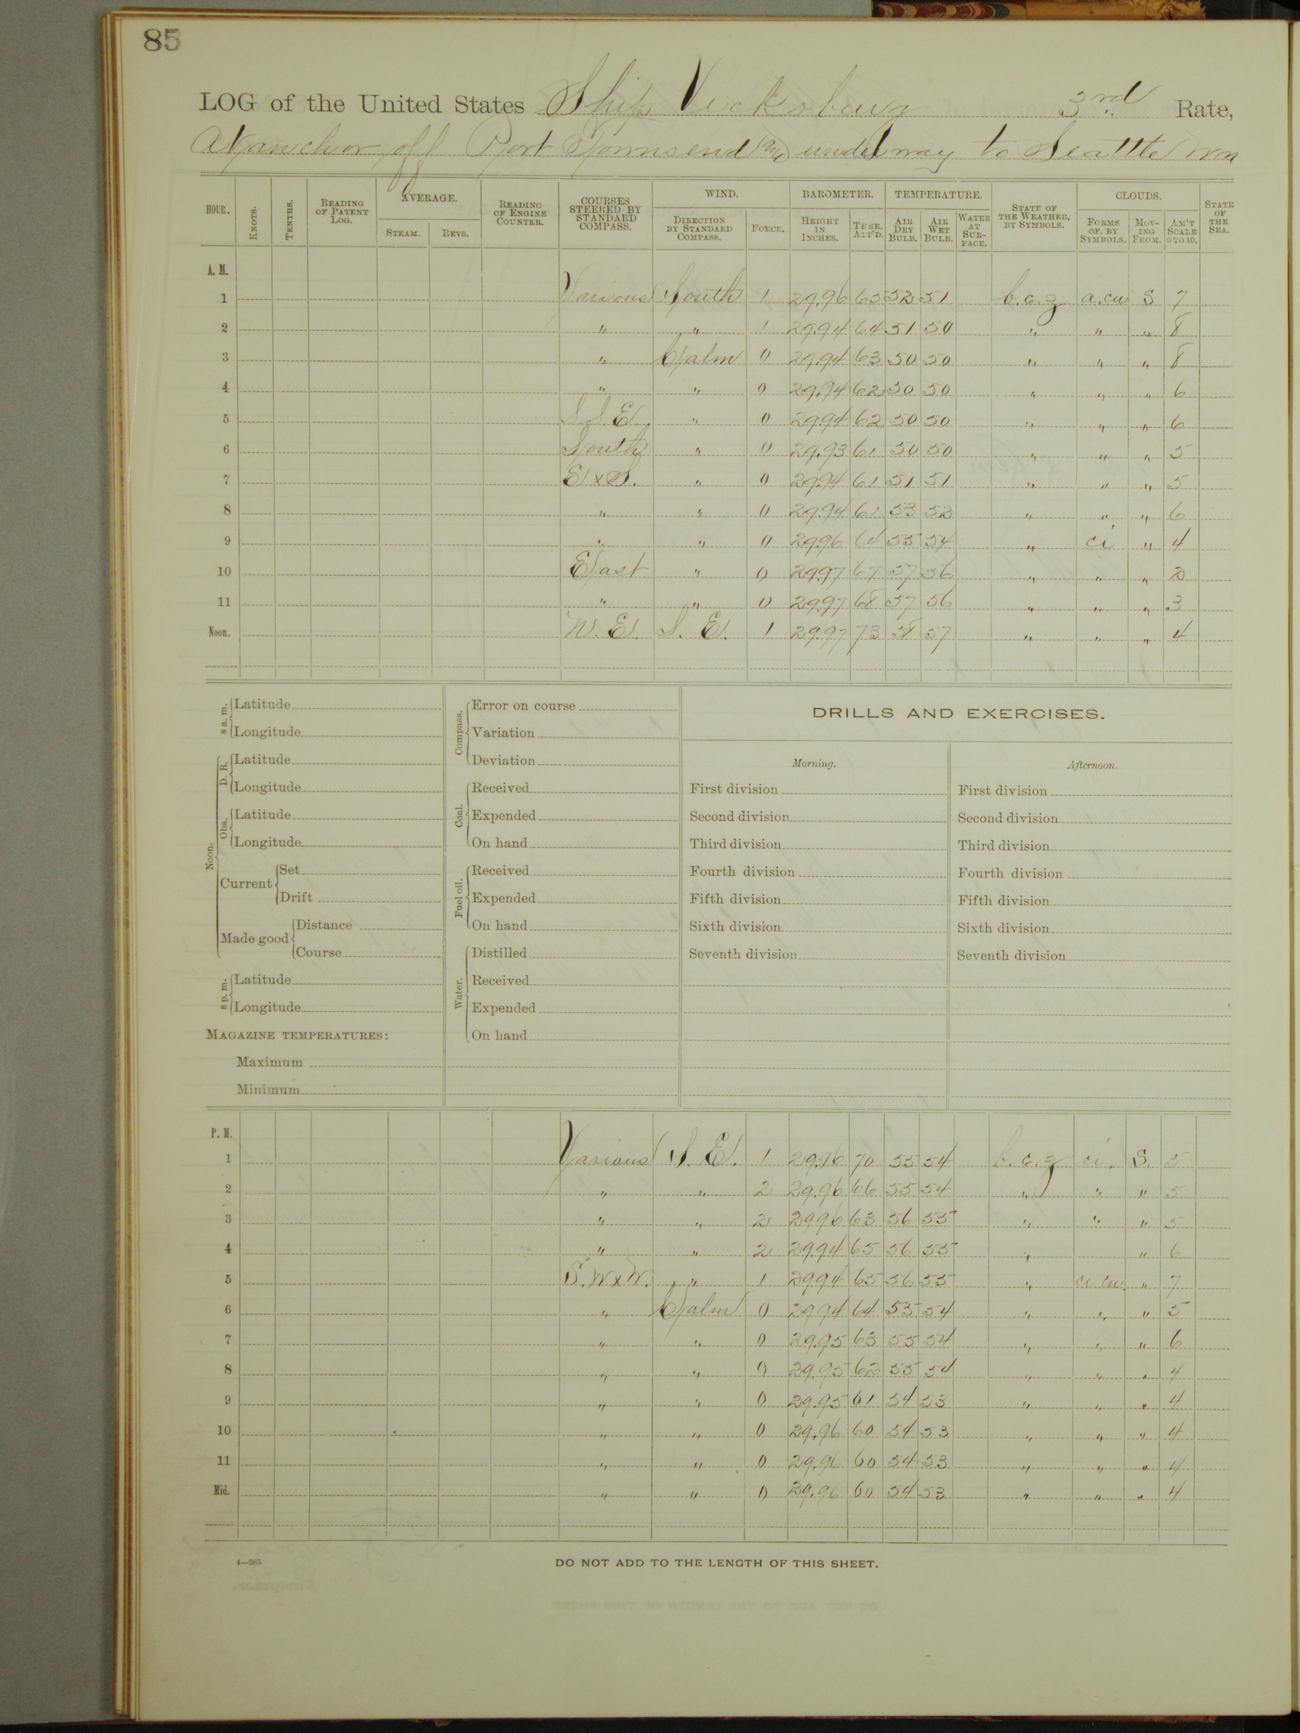 85
LOG of the United States Ship Vicksburg 3rd Rate,
At anchor off Port Townsend and underway to Seattle Wn
HOUR. KNOTS. TENTHS. READING OF PATENT LOG. AVERAGE. STEAM. REVS. READING OF ENGINE COUNTER. COURSES STEERED BY STANDARD COMPASS. WIND. DIRECTION BY STANDARD COMPASS. FORCE. BAROMETER. HEIGHT IN INCHES. THER. ATT'D. TEMPERATURE. AIR DRY BULB. AIR WET BULB. WATER AT SURFACE. STATE OF THE WEATHER, BY SYMBOLS. CLOUDS. FORMS OF, BY SYMBOLS. MOVING FROM. AM'T SCALE 0 TO 10. STATE OF THE SEA.
A. M.
1 Various South 1 29.96 65 52 51 b.c.z a.cu S 7
2 " " 1 29.94 64 51 50 " " " 8
3 " Calm 0 29.94 63 50 50 " " " 8
4 " " 0 29.94 62 50 50 " " " 6
5 S S E. " 0 29.94 62 50 50 " " " 6
6 South " 0 29.93 61 50 50 " " " 5
7 E x S. " 0 29.94 61 51 51 " " " 5
8 " " 0 29.94 61 53 52 " " " 6
9 " " 0 29.96 64 55 54 " ci " 4
10 East " 0 29.97 67 57 56 " " " 3
11 " " 0 29.97 68 57 56 " " " 3
Noon. N. E. S. E. 1 29.97 73 58 57 " " " 4
8 a. m. Latitude
Longitude
Noon. D. R. Latitude
Longitude
Obs. Latitude
Longitude
Current Set
Drift
Made good Distance
Course
8 p. m. Latitude
Longitude
MAGAZINE TEMPERATURES:
Maximum
Minimum
Compass. Error on course
Variation
Deviation
Coal. Received
Expended
On hand
Fuel oil. Received
Expended
On hand
Water. Distilled
Received
Expended
On hand
DRILLS AND EXERCISES.
Morning. Afternoon.
First division First division
Second division Second division
Third division Third division
Fourth division Fourth division
Fifth division Fifth division
Sixth division Sixth division
Seventh division Seventh division
P. M.
1 Various S. E. 1 29.96 70 55 54 b.c.z ci. S. 5
2 " " 2 29.96 66 55 54 " " " 5
3 " " 2 29.96 63 56 55 " " " 5
4 " " 2 29.94 65 56 55 " " 6
5 S.W x W. " 1 29.94 65 56 55 " ci.cu. " 7
6 " Calm 0 29.94 64 55 54 " " " 5
7 " " 0 29.95 63 55 54 " " " 6
8 " " 0 29.95 62 55 54 " " " 4
9 " " 0 29.95 61 54 53 " " " 4
10 " " 0 29.96 60 54 53 " " " 4
11 " " 0 29.96 60 54 53 " " " 4
Mid. " " 0 29.96 60 54 53 " " " 4
DO NOT ADD TO THE LENGTH OF THIS SHEET.